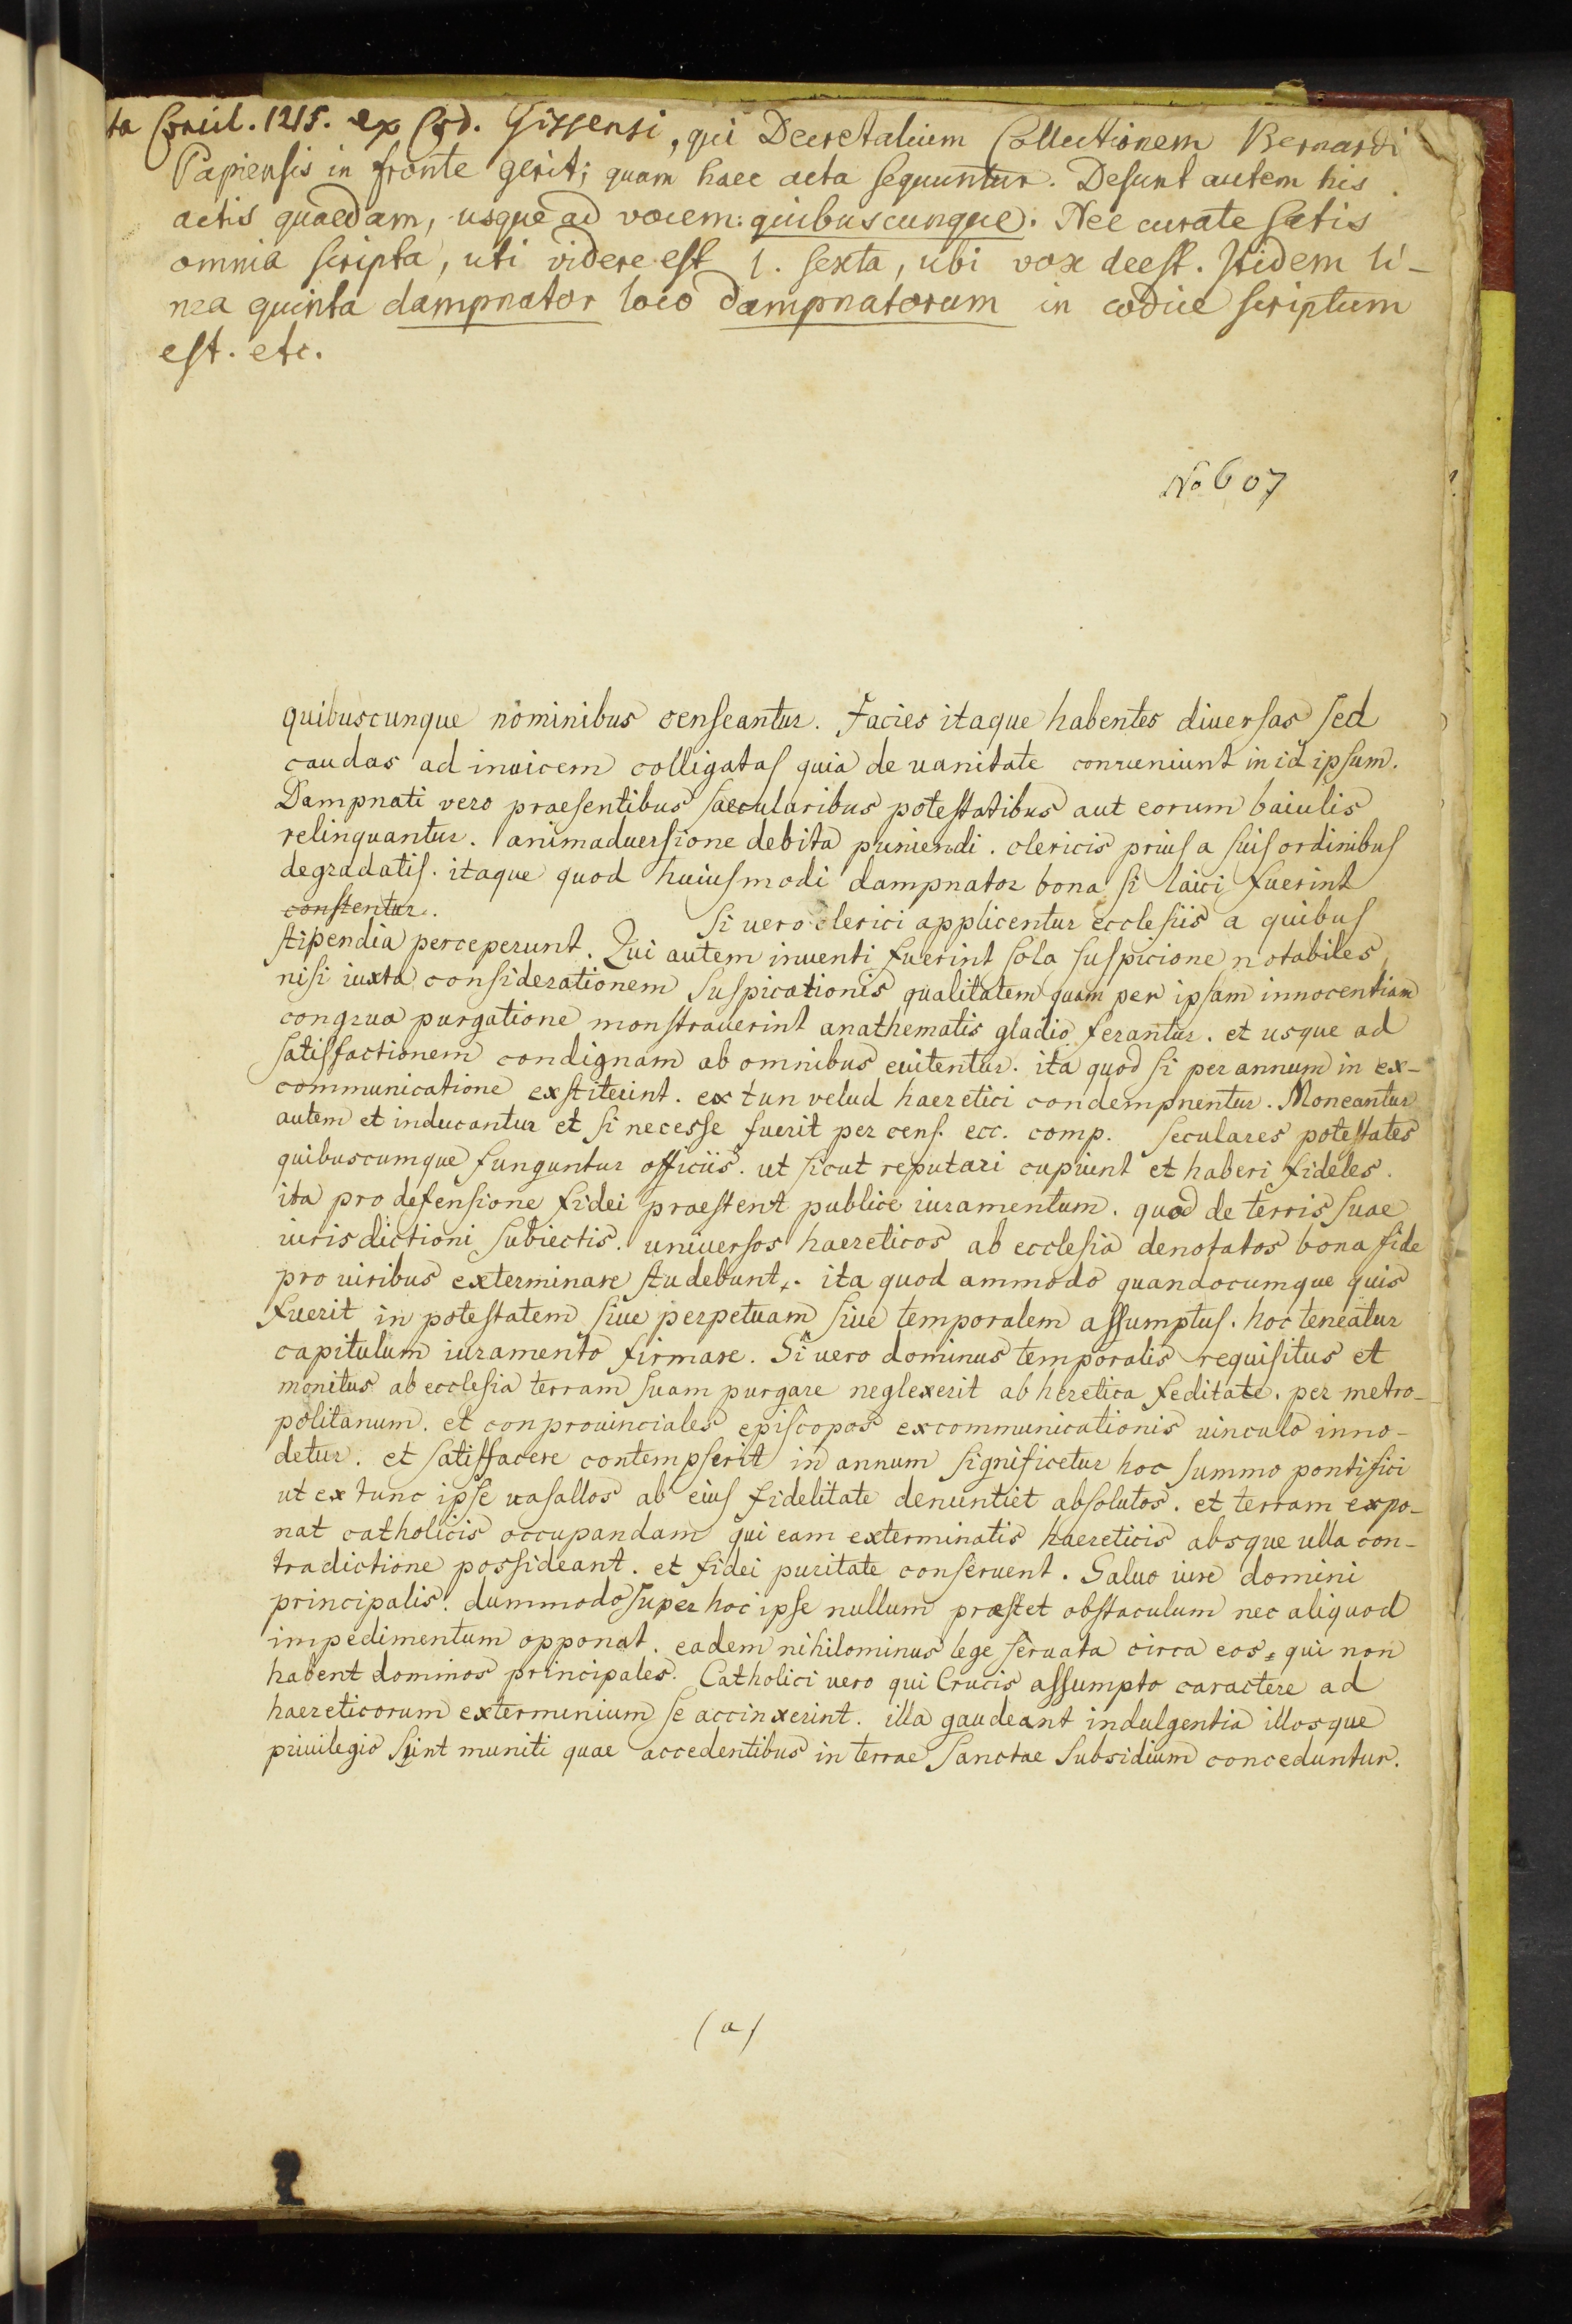 ta Concil. 1215. ex Cod. Gissensi, qui Decretalium Collectionem Bernardi
Papiensis in fronte gerit; quam haec acta sequuntur. Desunt autem his
actis quaedam, usque ad vocem: quibuscunque. Nec curate satis
omnia scripta, uti videre est l. sexta, ubi vox deest. Itidem li-
nea quinta dampnator loco dampnatorum in codice scriptum
est. etc.
No 607
quibuscunque nominibus censeantur. Facies itaque habentes diuersas sed
caudas ad inuicem colligatas quia de uanitate conueniunt in id ipsum.
Dampnati vero praesentibus saecularibus potestatibus aut eorum baiulis
relinquantur. animaduersione debita puniendi. clericis prius a suis ordinibus
degradatis. itaque quod huiusmodi dampnator bona si laici fuerint
constentur. Si uero clerici applicentur ecclesiis a quibus
stipendia perceperunt. Qui autem inuenti fuerint sola suspicione notabiles
nisi iuxta considerationem suspicationis qualitatem quam per ipsam innocentiam
congrua purgatione monstrauerint anathematis gladio ferantur. et usque ad
satisfactionem condignam ab omnibus euitentur. ita quod si per annum in ex-
communicatione exstiterint. ex tun velud haeretici condempnentur. Moneantur
autem et inducantur et si necesse fuerit per cens. ecc. comp. seculares potestates
quibuscumque funguntur officiis. ut sicut reputari cupiunt et haberi fideles.
ita pro defensione fidei praestent publice iuramentum. quod de terris suae
iurisdictioni subiectis. uniuersos haereticos ab ecclesia denotatos bona fide
pro uiribus exterminare studebunt. ita quod ammodo quandocumque quis
fuerit in potestatem siue perpetuam siue temporalem assumptus. hoc teneatur
capitulum iuramento firmare. Si uero dominus temporalis requisitus et
monitus ab ecclesia terram suam purgare neglexerit ab heretica feditate. per metro-
politanum. et conprouinciales episcopos excommunicationis uinculo inno-
detur. et satisfacere contempserit in annum significetur hoc summo pontifici
ut ex tunc ipse uasallos ab eius fidelitate denuntiet absolutos. et terram expo-
nat catholicis occupandam qui eam exterminatis haereticis absque ulla con-
tradictione possideant. et fidei puritate conseruent. Saluo iure domini
principalis. dummodo super hoc ipse nullum praestet obstaculum nec aliquod
impedimentum opponat. eadem nihilominus lege seruata circa eos, qui non
habent dominos principales. Catholici uero qui Crucis assumpto caractere ad
haereticorum exterminium se accinxerint. illa gaudeant indulgentia illosque
priuilegio sint muniti quae accedentibus in terrae sanctae subsidium conceduntur.
(a)